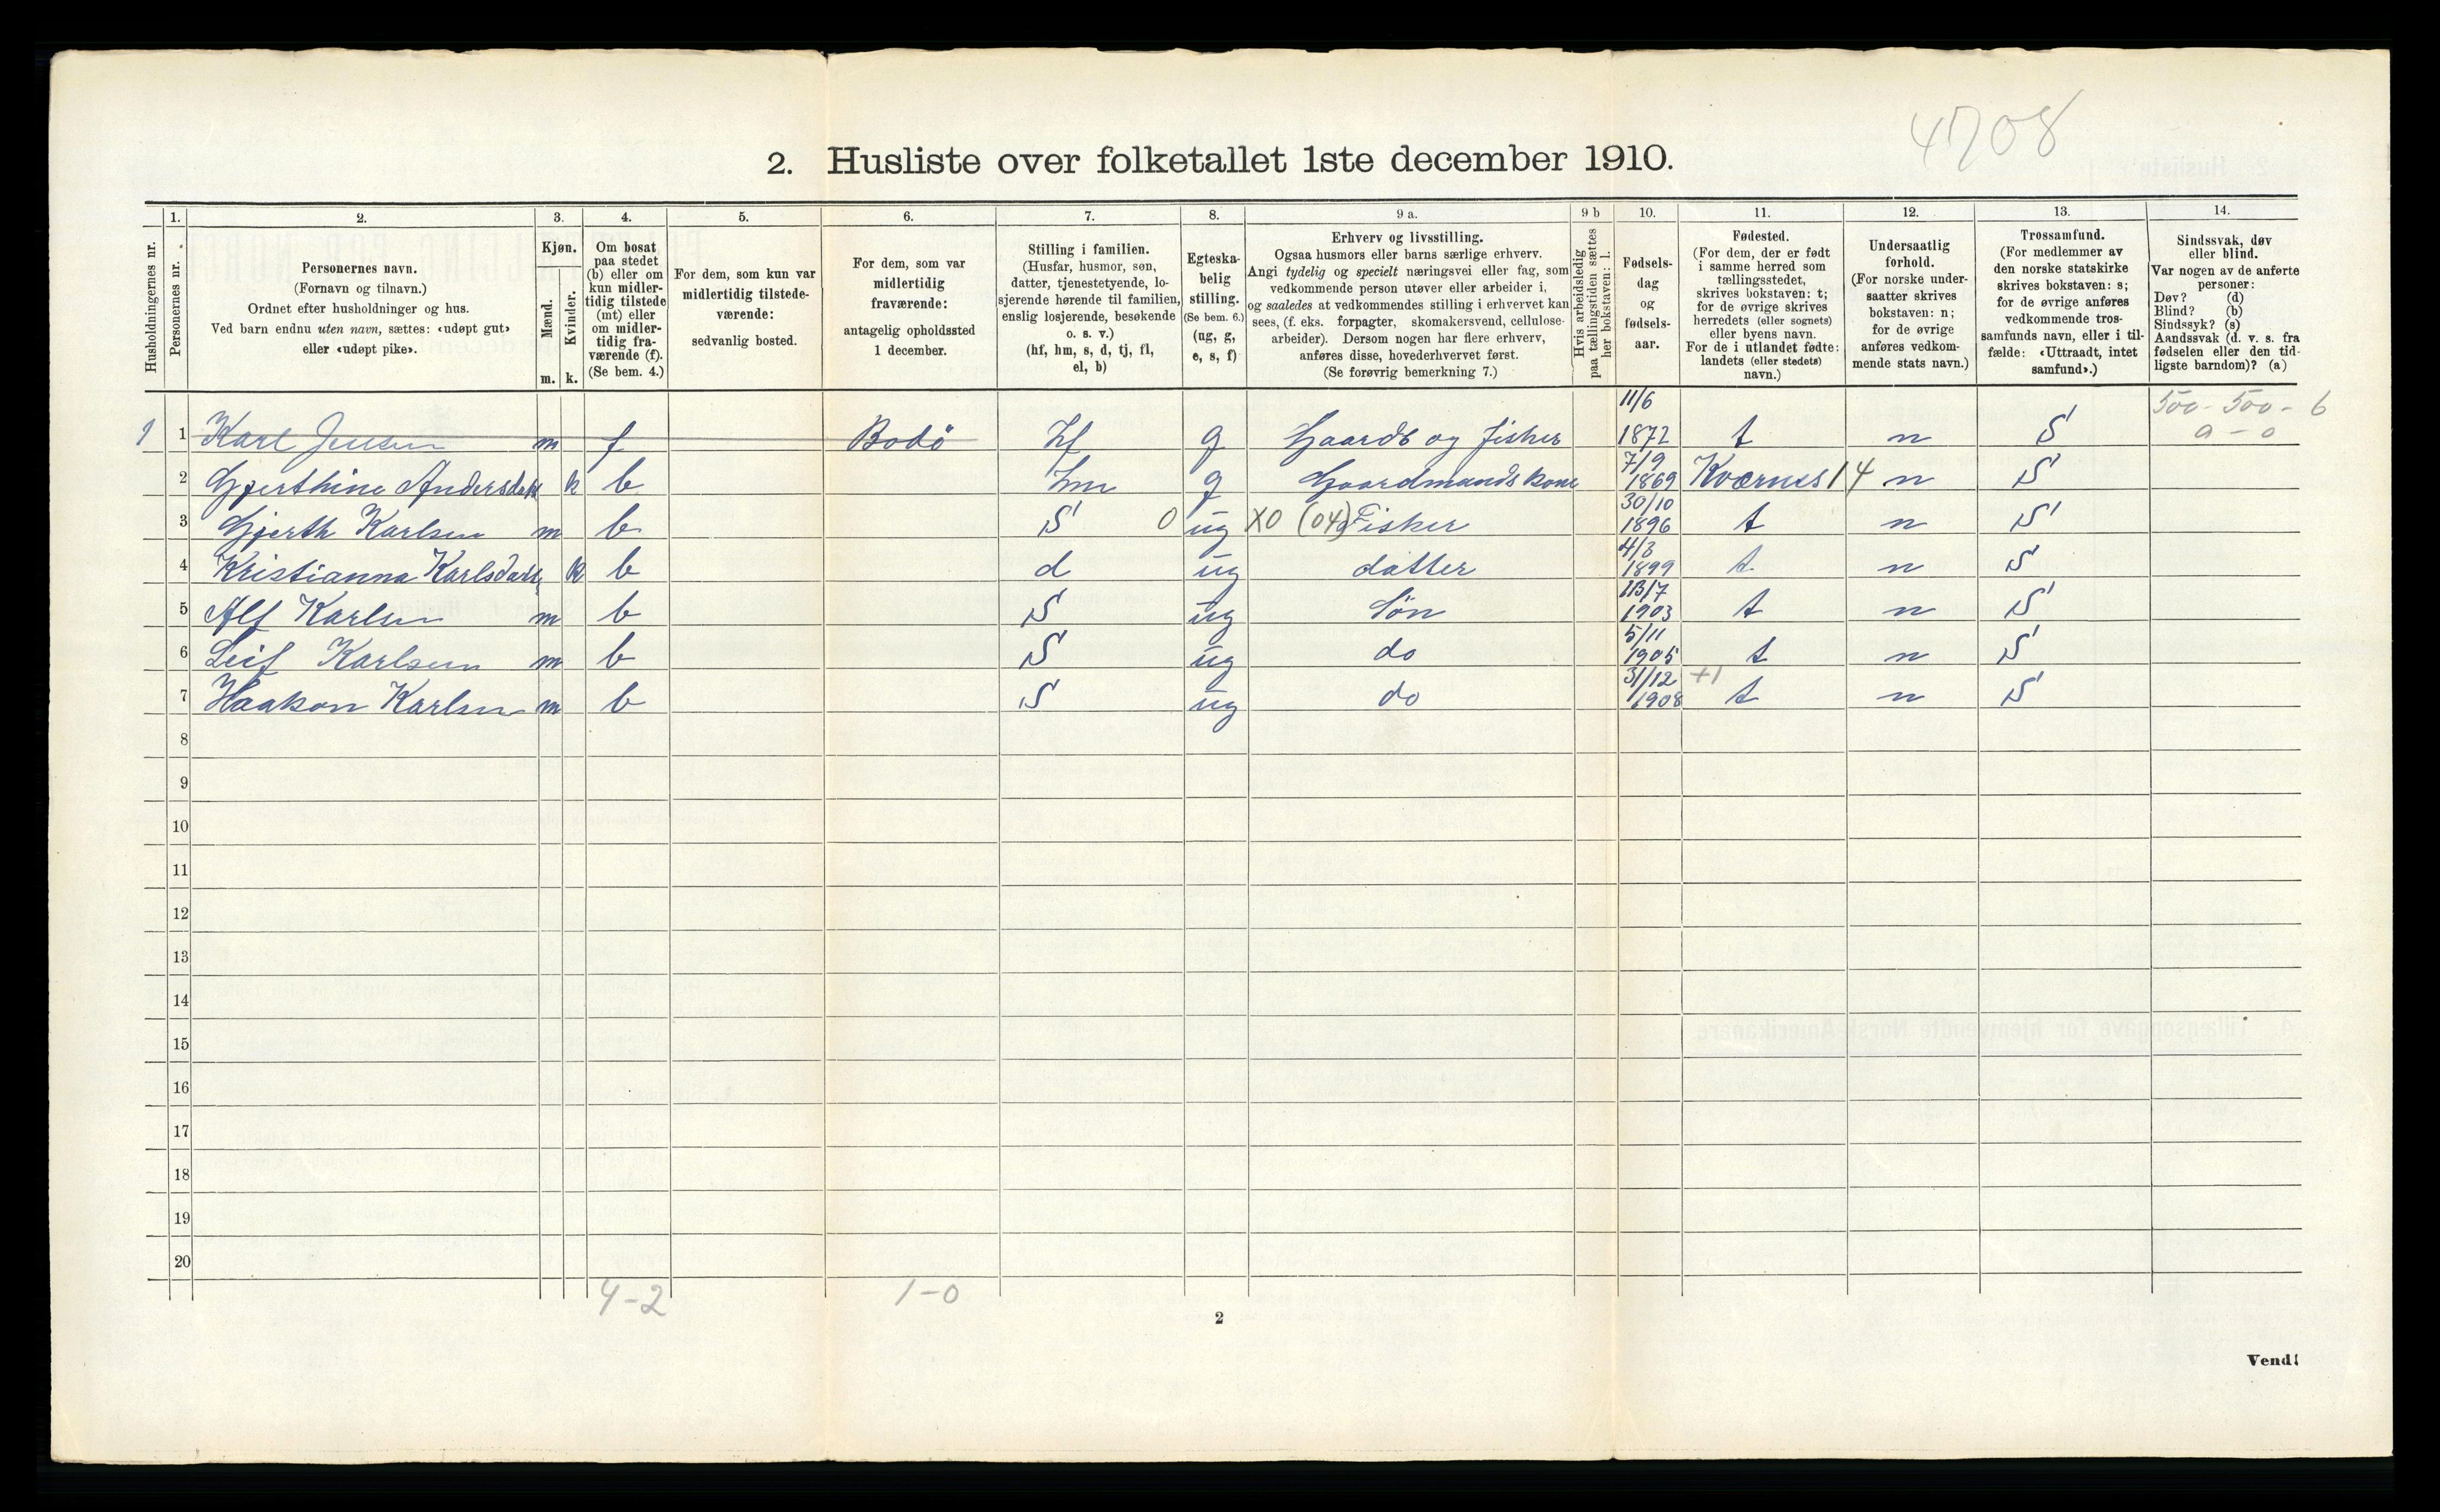 4708
2. Husliste over folketallet 1ste december 1910.
Husholdningernes nr.
1.
Personernes nr.
2.
Personernes navn.
(Fornavn og tilnavn.)
Ordnet efter husholdninger og hus.
Ved barn endnu uten navn, sættes: «udøpt gut»
eller «udøpt pike».
3.
Kjøn.
Mænd.
m.
Kvinder.
k.
4.
Om bosat
paa stedet
(b) eller om
kun midler-
tidig tilstede
(mt) eller
om midler-
tidig fra-
værende (f).
(Se bem. 4.)
5.
For dem, som kun var
midlertidig tilstede-
værende:
sedvanlig bosted.
6.
For dem, som var
midlertidig
fraværende:
antagelig opholdssted
1 december.
7.
Stilling i familien.
(Husfar, husmor, søn,
datter, tjenestetyende, lo-
sjerende hørende til familien,
enslig losjerende, besøkende
o. s. v.)
(hf, hm, s, d, tj, fl,
el, b)
8.
Egteska-
belig
stilling.
(Se bem. 6.)
(ug, g,
e, s, f)
9 a.
Erhverv og livsstilling.
Ogsaa husmors eller barns særlige erhverv.
Angi tydelig og specielt næringsvei eller fag, som
vedkommende person utøver eller arbeider i,
og saaledes at vedkommendes stilling i erhvervet kan
sees, (f. eks. forpagter, skomakersvend, cellulose-
arbeider). Dersom nogen har flere erhverv,
anføres disse, hovederhvervet først.
(Se forøvrig bemerkning 7.)
9 b
Hvis arbeidsledig
paa tællingstiden sættes
her bokstaven: l.
10.
Fødsels-
dag
og
fødsels-
aar.
11.
Fødested.
(For dem, der er født
i samme herred som
tællingsstedet,
skrives bokstaven: t;
for de øvrige skrives
herredets (eller sognets)
eller byens navn.
For de i utlandet fødte:
landets (eller stedets)
navn.)
12.
Undersaatlig
forhold.
(For norske under-
saatter skrives
bokstaven: n;
for de øvrige
anføres vedkom-
mende stats navn.)
13.
Trossamfund.
(For medlemmer av
den norske statskirke
skrives bokstaven: s;
for de øvrige anføres
vedkommende tros-
samfunds navn, eller i til-
fælde: «Uttraadt, intet
samfund».)
14.
Sindssvak, døv
eller blind.
Var nogen av de anførte
personer:
Døv? (d)
Blind? (b)
Sindssyk? (s)
Aandssvak (d. v. s. fra
fødselen eller den tid-
ligste barndom)? (a)
500 - 500 - 6
a - 0
1 1 Karl Jensen m f Bodö hf g Gaardb og fisker 11/6 1872 t n S
2 Gjerthine Andersdatt k b hm g Gaardmandskone 7/9 1869 Kværnes 14 n S
3 Gjerth Karlsen m b S 0 ug X0 (04) Fisker 30/10 1896 t n S
4 Kristianna Karlsdatt k b d ug datter 4/3 1899 t n S
5 Alf Karlsen m b S ug Sön 13/7 1903 t n S
6 Leif Karlsen m b S ug do 5/11 1905 t n S
7 Haakon Karlsen m b S ug do 31/12 1908 +1 t n S
8
9
10
11
12
13
14
15
16
17
18
19
20
4-2 1-0
2
Vend!